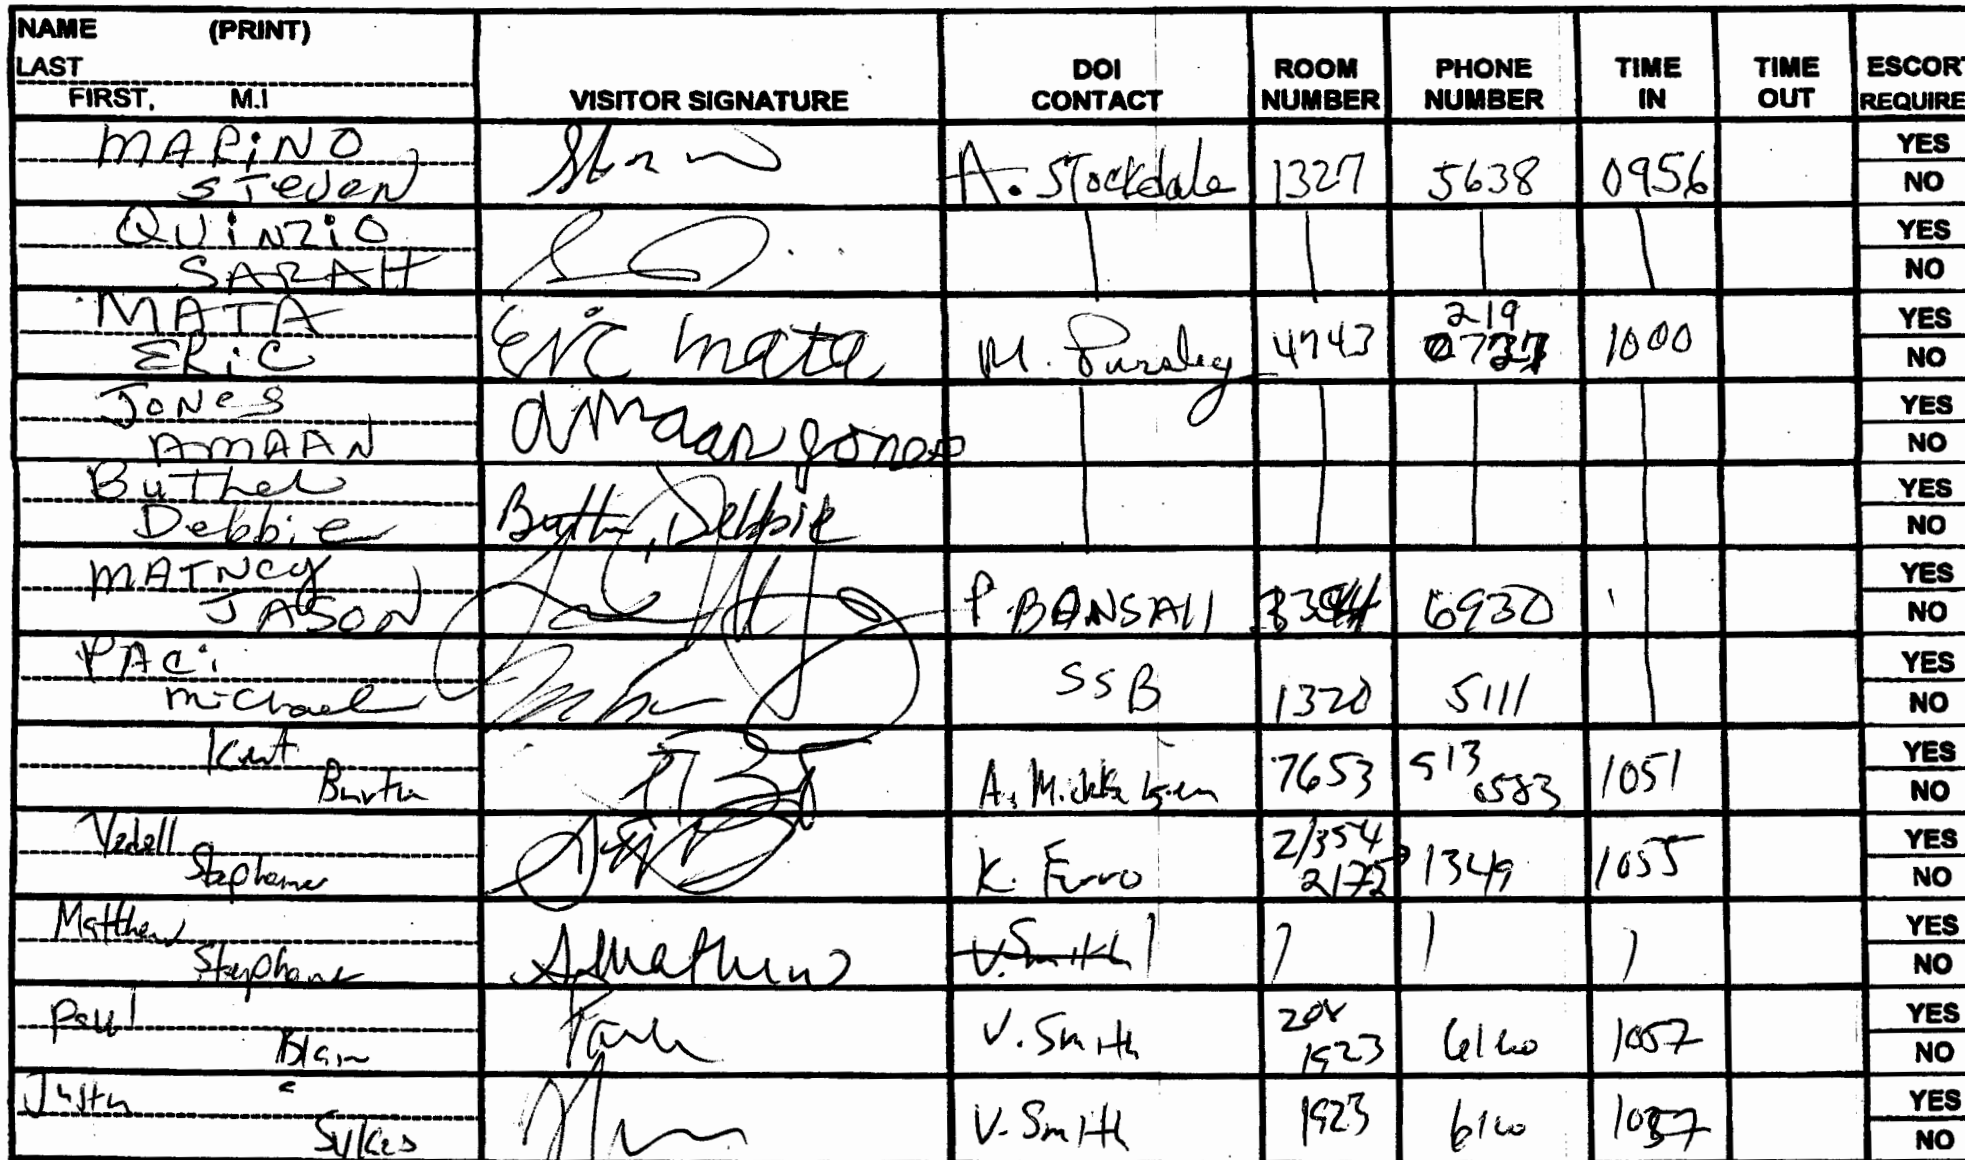 NAME (PRINT)
LAST
FIRST, M.I
VISITOR SIGNATURE
DOI CONTACT
ROOM NUMBER
PHONE NUMBER
TIME IN
TIME OUT
ESCORT REQUIRE
MARINO
STEVEN
A. Stockdale 1327 5638 0956
YES
NO
QUINZIO
SARAH
YES
NO
MATA
ERIC
Eric Mata
M. Pursley 4743 219 1000
YES
NO
JONES
AMAAN
Amaan Jones
YES
NO
Buther
Debbie
Debbie
YES
NO
MATNEY
JASON
P BANSAll 6930
YES
NO
PACi
Michael
SSB 1320 5111
YES
NO
Kent
Burton
7653 513 0583 1051
YES
NO
Vedell
Stephane
K. 2/354 1349 1055
2175
YES
NO
Matthew
Stephane
V. Smith
YES
NO
Paul
Blain
V. Smith 1923 6160 1057
YES
NO
Justin
Sykes
V. Smith 1923 6160 1057
YES
NO